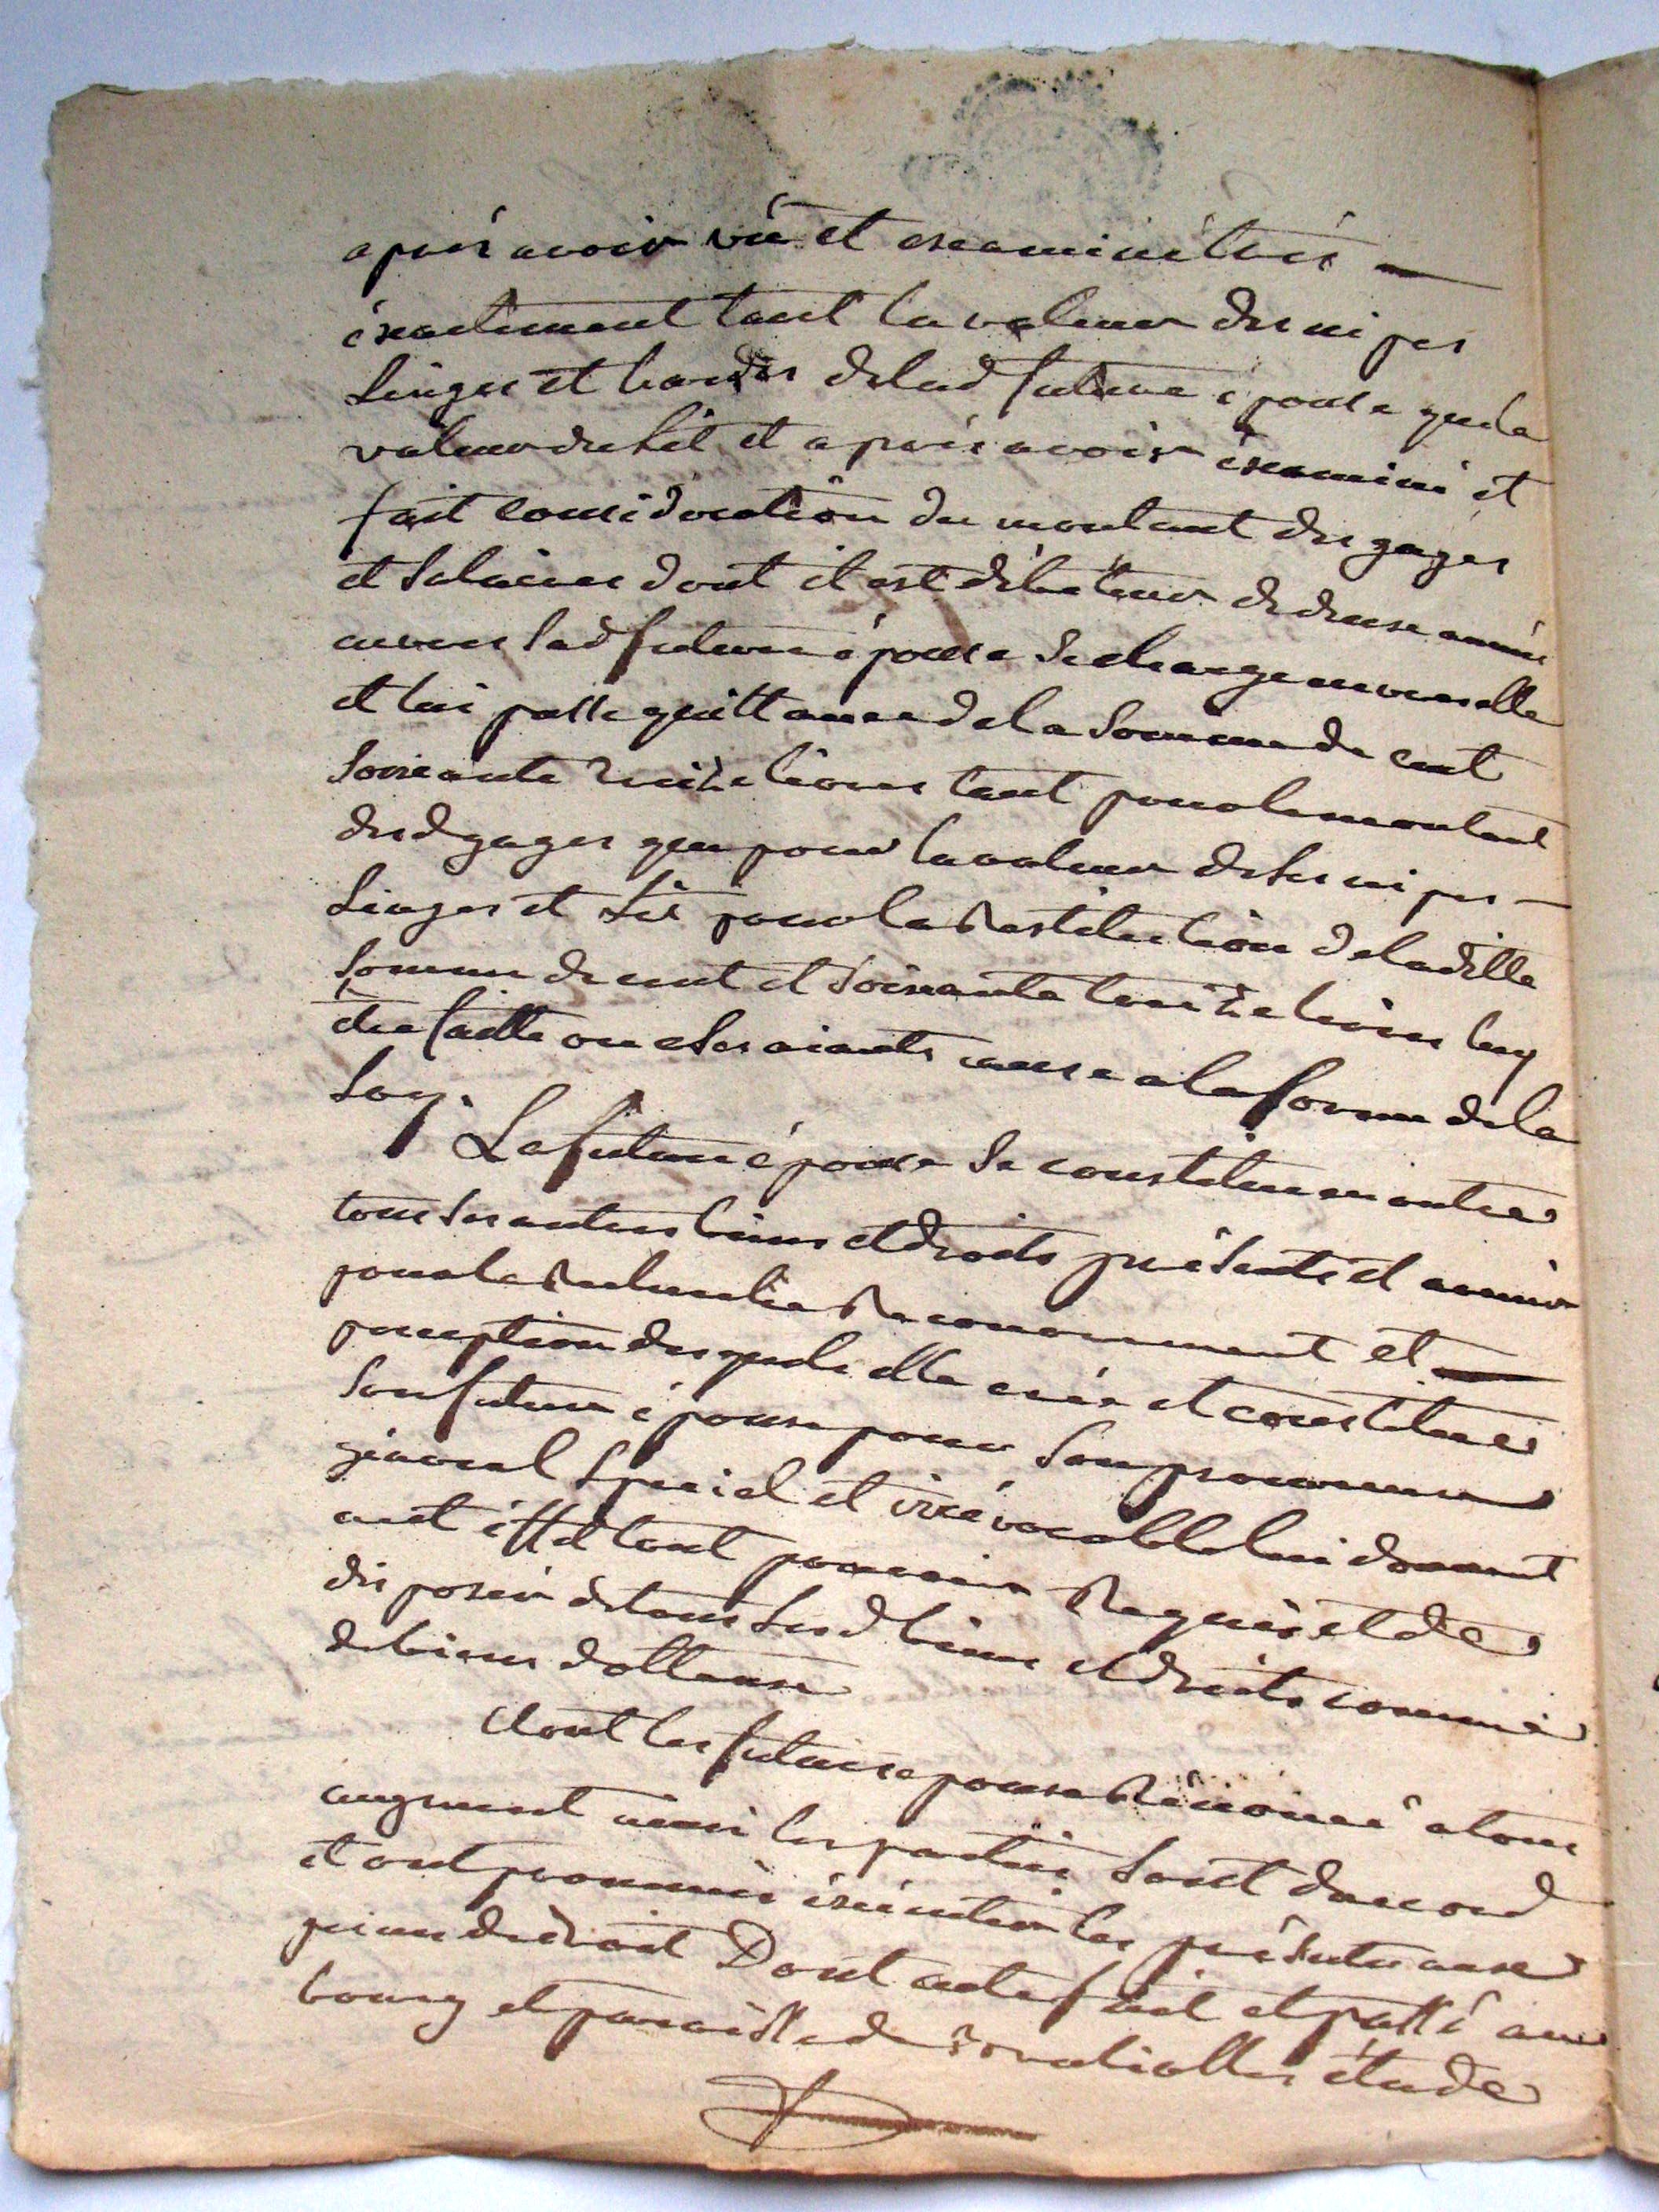 après avoir vû et examiné très
éxactement tant la valeur des nipes
Linges et hardes delad future épouse que la
valeur du Lit et après avoir éxaminé et
fait considération du montant des gages
et Salaires dont il est débiteur de deux années
envers Lad future épouse Se charge envers elle
et lui passe quittance de la Somme de cent
Soixante treize livres tant pour le montant
desd gages que pour la valeur de Ses nipes
Linges et Lit pour la Restitution de laditte
Somme de cent et Soixante treize livres luy
être faitte ou a Ses aiants cause a la forme de la
Loy.
La future épouse Se constitue en outre
tous Ses autres biens et droits présents et avenir
pour la Recherche Recouvrement et
perception desquels elle crée et constitue
Son futur épouse pour Son procureur
général Spécial et irrévocable lui donnant
a cet effet tout pouvoir Requis et de
disposer de tous Sesd biens et droits comme
de biens dottaux
dont les futurs epouse Rénoncé a tous
augment ainsi les parties Sont d'accord
et ont promis éxécuter les présentes aux
peines de droit Dont acte fait et passé au
bourg et paroisse de étude